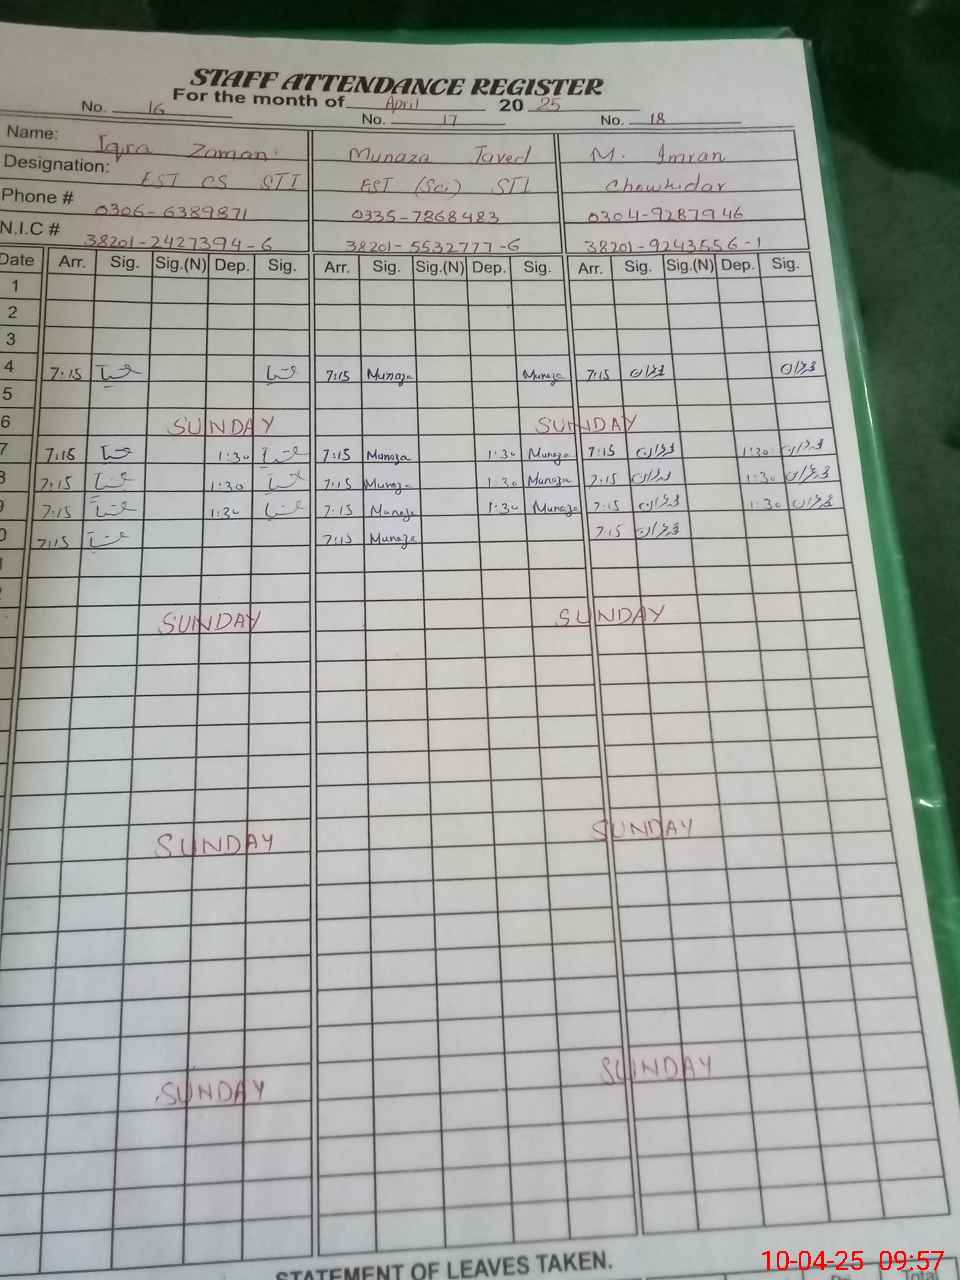 STAFF ATTENDANCE REGISTER
For the month of April 20 25
No. 16 No. 17 No. 18
Name: Iqra Zaman Munaza Javed M. Imran
Designation: EST CS STI EST (Sci) STI Chowkidar
Phone # 0306-6389871 0335-7868483 0304-9287946
N.I.C # 38201-2427394-6 38201-5532777-6 38201-9243556-1
Date Arr. Sig. Sig.(N) Dep. Sig. Arr. Sig. Sig.(N) Dep. Sig. Arr. Sig. Sig.(N) Dep. Sig.
1
2
3
4 7:15 7:15 Munaza Munaza 7:15 عمران عمران
5
6 SUNDAY SUNDAY
7 7:15 1:30 7:15 Munaza 1:30 Munaza 7:15 عمران 1:30 عمران
8 7:15 1:30 7:15 Munaza 1:30 Munaza 7:15 عمران 1:30 عمران
9 7:15 1:30 7:15 Munaza 1:30 Munaza 7:15 عمران 1:30 عمران
0 7:15 7:15 Munaza 7:15 عمران
SUNDAY SUNDAY
SUNDAY SUNDAY
SUNDAY SUNDAY
STATEMENT OF LEAVES TAKEN.
Total
10-04-25 09:57